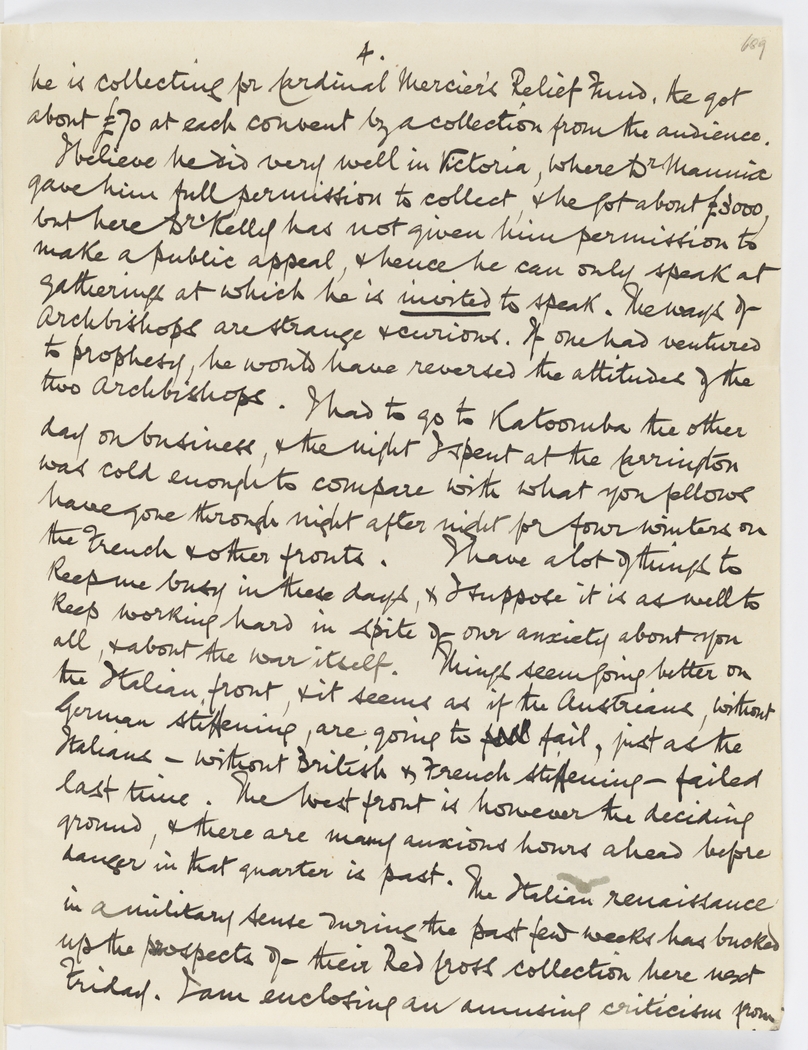 4.
689
he is collecting for Cardinal Mercier's Relief Fund. He got
about £70 at each convent by a collection from the audience.
I believe he did very well in Victoria, where Dr Mannix
gave him full permission to collect, & he got about £3000,
but here Dr Kelly has not given him permission to
make a public appeal, & hence he can only speak at
gatherings at which he is invited to speak. The ways of
Archbishops are strange & curious. If one had ventured
to prophesy, he would have reversed the attitudes of the
two Archbishops. I had to go to Katoomba the other
day on business, & the night I spent at the Carrington
was cold enough to compare with what you fellows
have gone through night after night for four winters on
the French & other fronts. I have a lot of things to
keep me busy in these days, & I suppose it is as well to
keep working hard in spite of our anxiety about you
all, & about the war itself. Things seem going better on
the Italian front, & it seems as if the Austrians, without
German stiffening, are going to fail, just as the
Italians - without British & French stiffening - failed
last time. The West front is however the deciding
ground, & there are many anxious hours ahead before
danger in that quarter is past. The Italian renaissance
in a military sense during the past few weeks has bucked
up the prospects of their Red Cross collection here next
Friday. I am enclosing an amusing criticism from